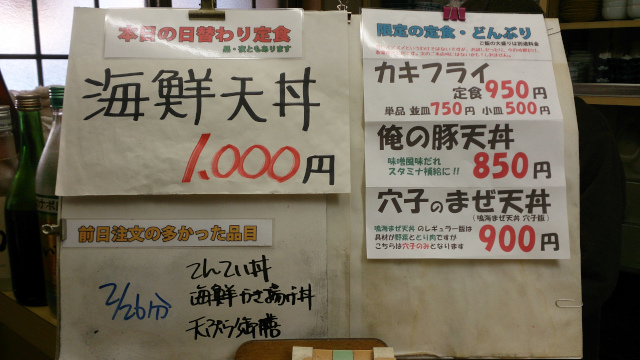 本日の日替わり定食
昼・夜ともあります
海鮮天丼
1,000円
前日注文の多かった品目
2/26分
海鮮かき揚げ丼
天ぷら御膳
限定の定食・どんぶり
ご飯の大盛りは別途料金
カキフライ
定食950円
単品 並皿750円 小皿500円
俺の豚天丼
味噌風味だれ
スタミナ補給に!!
850円
穴子のまぜ天丼
(鳴海まぜ天丼 穴子飯)
鳴海まぜ天丼 のレギュラー飯は
具材が野菜ととり肉ですが
こちらは穴子のみとなります
900円